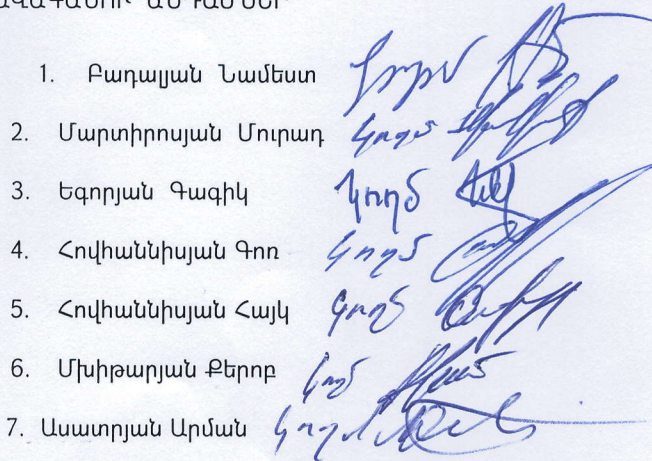 ԱՎԱԳԱՆՈՒ ԱՆԴԱՄՆԵՐ
1. Բադալյան Նամեստ
2. Մարտիրոսյան Մուրադ կողմ
3. Եգորյան Գագիկ կողմ
4. Հովհաննիսյան Գոռ կողմ
5. Հովհաննիսյան Հայկ կողմ
6. Մխիթարյան Քերոբ կողմ
7. Ասատրյան Արման կողմ